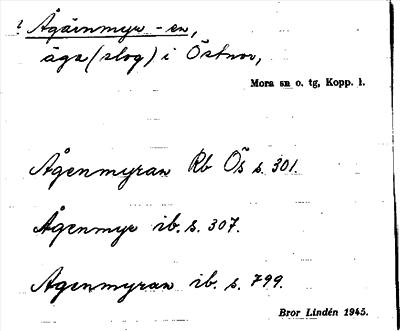 Ågäinmyr -en,
äga (slog) i Östnor,
Mora sn o. tg, Kopp. l.
Ågenmyran Rb Ös s. 301.
Ågenmyr ib. s. 307.
Agenmyran ib. s. 799.
Bror Lindén 1945.